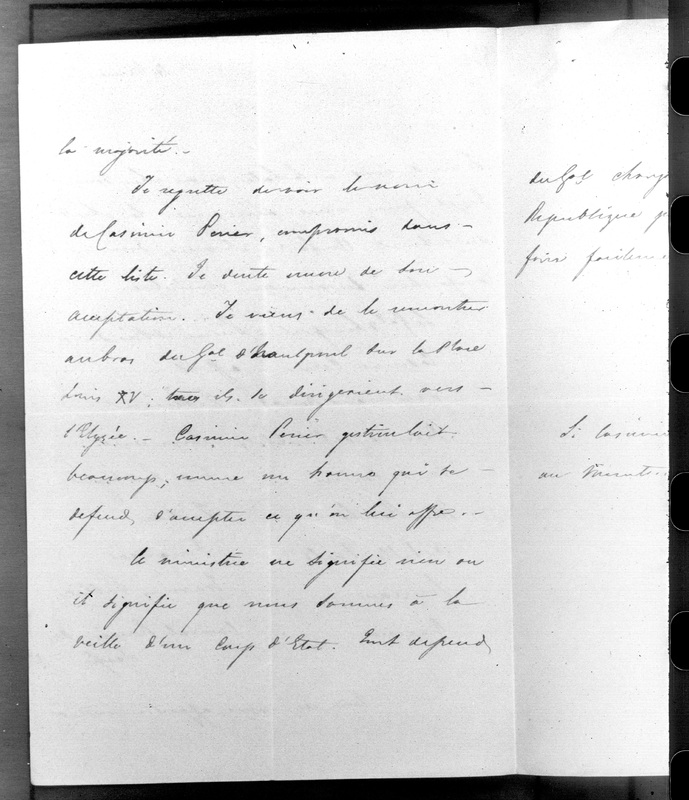 la majorité. –
Je regrette de voir le nom
de Casimir Perier, compromis dans –
cette liste. Je doute encore de son –
acceptation. Je viens de le rencontrer
au bras du Gal d'hautpoul sur la Place
Louis XV; ils se dirigeaient vers –
l'Elysée. – Casimir Perier gesticulait
beaucoup, comme un homme qui se –
defend d'accepter ce qu'on lui offre. –
Ce ministère ne signifie rien ou
il signifie que nous sommes à la
veille d'un Coup d'Etat. Tout depend
du Gal chang
Republique p
Si Casimir
au